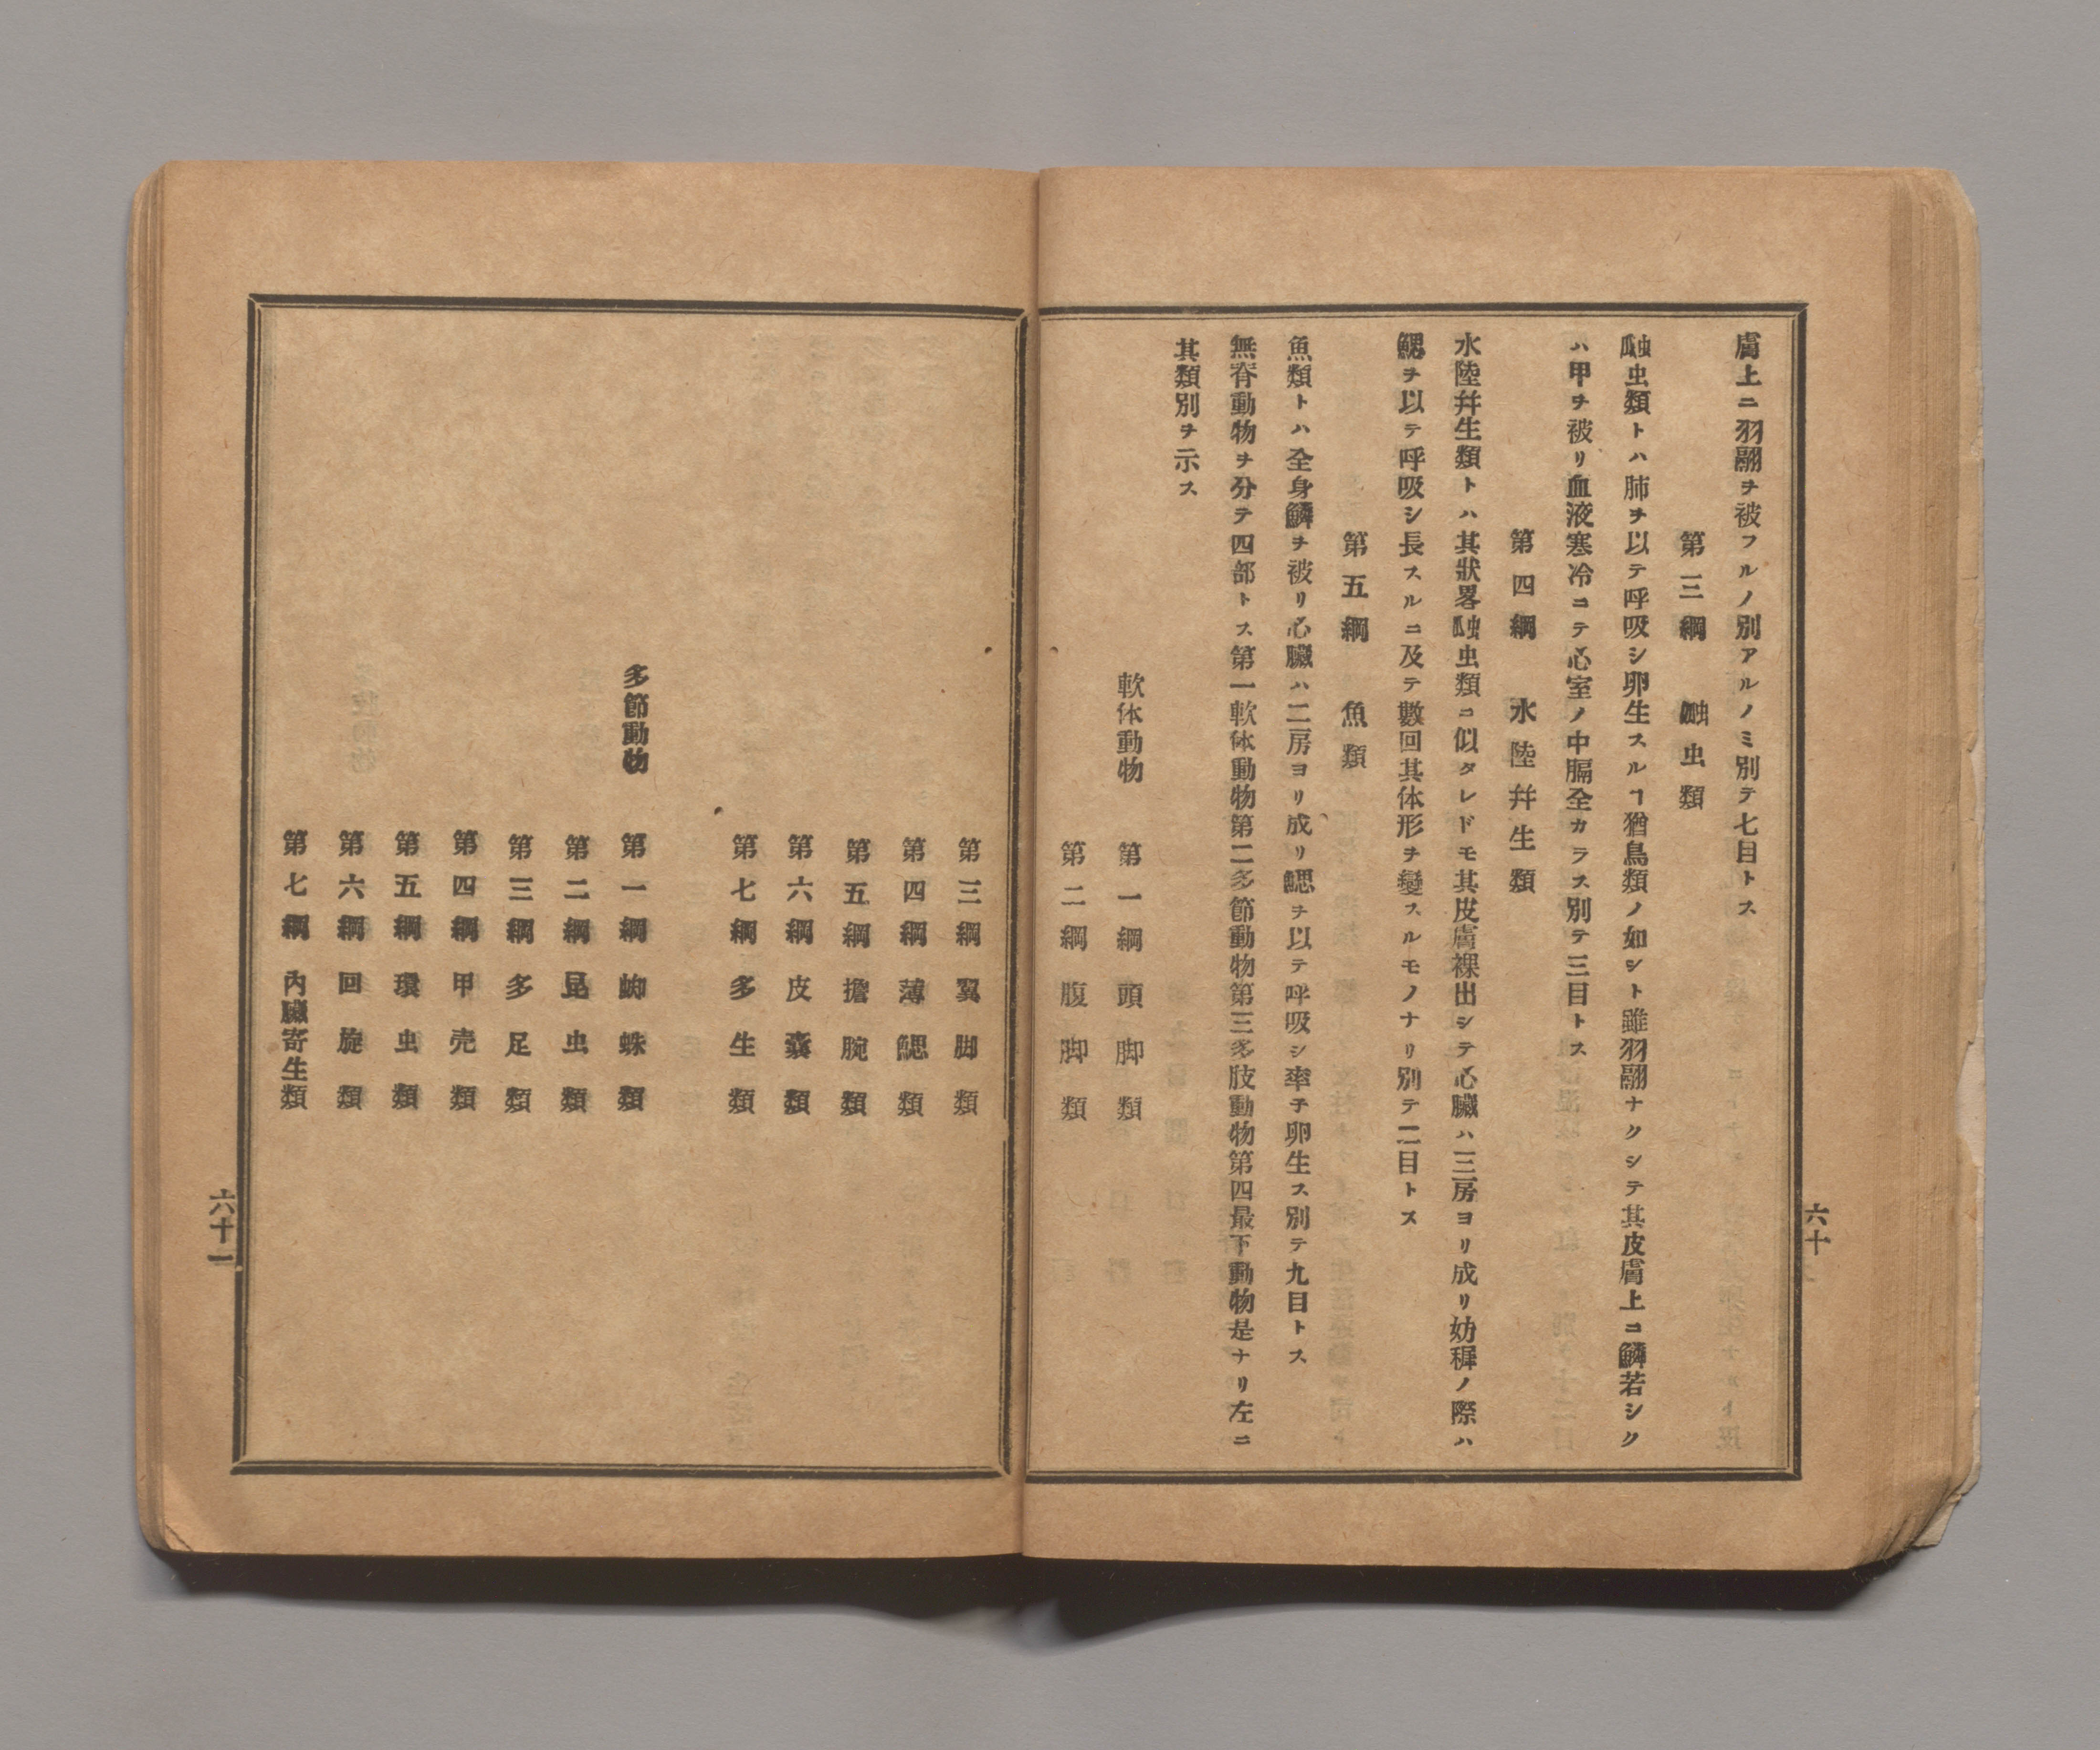 膚上ニ羽翮ヲ被フルノ別アルノミ別テ七目トス
第三綱　䖝虫類
䖝虫類トハ肺ヲ以テ呼吸シ卵生スルヿ猶鳥類ノ如シト雖羽翮ナクシテ其皮膚上ニ鱗若シク
ハ甲ヲ被リ血液寒冷ニテ心室ノ中膈全カラス別テ三目トス
第四綱　水陸幷生類
水陸幷生類トハ其狀畧䖝虫類ニ似タレドモ其皮膚裸出シテ心臟ハ三房ヨリ成リ幼穉ノ際ハ
鰓ヲ以テ呼吸シ長スルニ及テ數回其体形ヲ變スルモノナリ別テ二目トス
第五綱　魚類
魚類トハ全身鱗ヲ被リ心臟ハ二房ヨリ成リ鰓ヲ以テ呼吸シ率子卵生ス別テ九目トス
無脊動物ヲ分テ四部トス第一軟体動物第二多節動物第三多肢動物第四最下動物是ナリ左ニ
其類別ヲ示ス
軟体動物　第一綱　頭脚類
第二綱　腹脚類
六十
第三綱　翼脚類
第四綱　薄鰓類
第五綱　擔腕類
第六綱　皮嚢類
第七綱　多生類
多節動物　第一綱　蜘蛛類
第二綱　昆虫類
第三綱　多足類
第四綱　甲壳類
第五綱　環虫類
第六綱　回旋類
第七綱　內臟寄生類
六十一